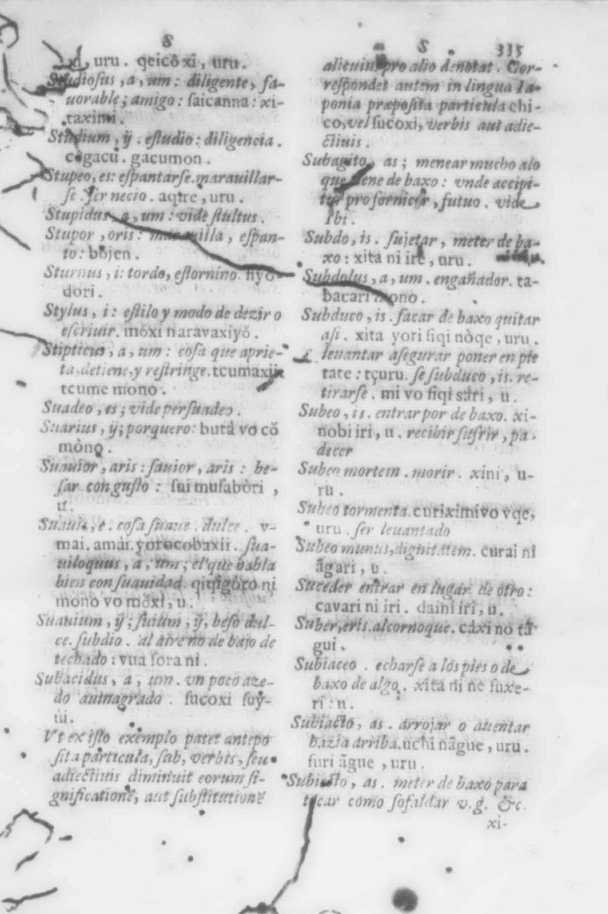 S
xi, uru. qeicǒ xi, uru.
Studiosus, a, um: diligente, fa-
uorable; amigo: saicanna: xi-
taximi.
Studium, ÿ. estudio: diligencia.
cogacu. gacumon.
Stupeo, es: espantarse. marauillar-
se. ser necio. aqire, uru.
Stupidus, a, um: vide stultus.
Stupor, oris: marauilla, espan-
to: bǒjen.
Sturnus, i: tordo, estornino.
dori.
Stylus, i: estilo y modo de dezir o
escriuir. mǒxi naravaxiyǒ.
Stipticus, a, um: cosa que aprie-
ta, detiene, y restringe. tcumaxii
tcume mono.
Suadeo, es; vide persuadeo.
Suarius, ÿ; porquero: butà vo cǒ
mòno.
Suauior, aris: sauior, aris: be-
sar con gusto: sui musabòri,
u.
Suauis, e. cosa suaue. dulce. v-
mai. amài. yorocobaxii. sua-
uiloquus, a, um; el que habla
bien con suauidad. qiqigòro ni
mono vo mǒxi, u.
Suauium, ÿ; suium, ÿ, beso dul-
ce. subdio. al aire no de bajo de
techado: vua sora ni.
Subacidus, a, um. vn poco aze-
do auinagrado. sucoxi suy-
ùi.
Vt ex isto exemplo patet antepo
sita particula, sub, verbis, seu
adiectiuis diminuit eorum si-
gnificatione, aut substitutione
S 335
alicuius pro alio denotat. Cor-
respondet autem in lingua Ia-
ponia præposita particula chi-
co, vel sucoxi, verbis aut adie-
ctiuis.
Subagito, as; menear mucho alo
que tiene de baxo: vnde accipi-
tur pro fornicor, futuo. vide
ibi.
Subdo, is. sujetar, meter de ba-
xo: xità ni ire, uru.
Subdolus, a, um. engañador. ta-
bacari mono.
Subduco, is. sacar de baxo quitar
asi. xita yori fiqi nòqe, uru.
leuantar asegurar poner en pie
tate: tçuru. se subduco, is. re-
tirarse. mi vo fiqi sàri, u.
Subeo, is. entrar por de baxo. xi-
nobi iri, u. recibir sufrir, pa-
decer
Subeo mortem. morir. xini, u-
ru.
Subeo tormenta. curiximivo vqe,
uru. ser leuantado
Subeo munus, dignitatem. curai ni
ǎgari, u.
Suceder entrar en lugar de otro:
cavari ni iri. daini iri, u.
Suber, eris. alcornoque. càxi no tǎ
gui.
Subiaceo. echarse a los pies o de
baxo de algo. xità ni ne fuxe-
ri: u.
Subiacto, as. arrojar o auentar
hazia arriba. uchi nǎgue, uru.
furi ǎgue, uru.
Subiacto, as. meter de baxo para
tocar como sofaldar v.g. &c.
xi-